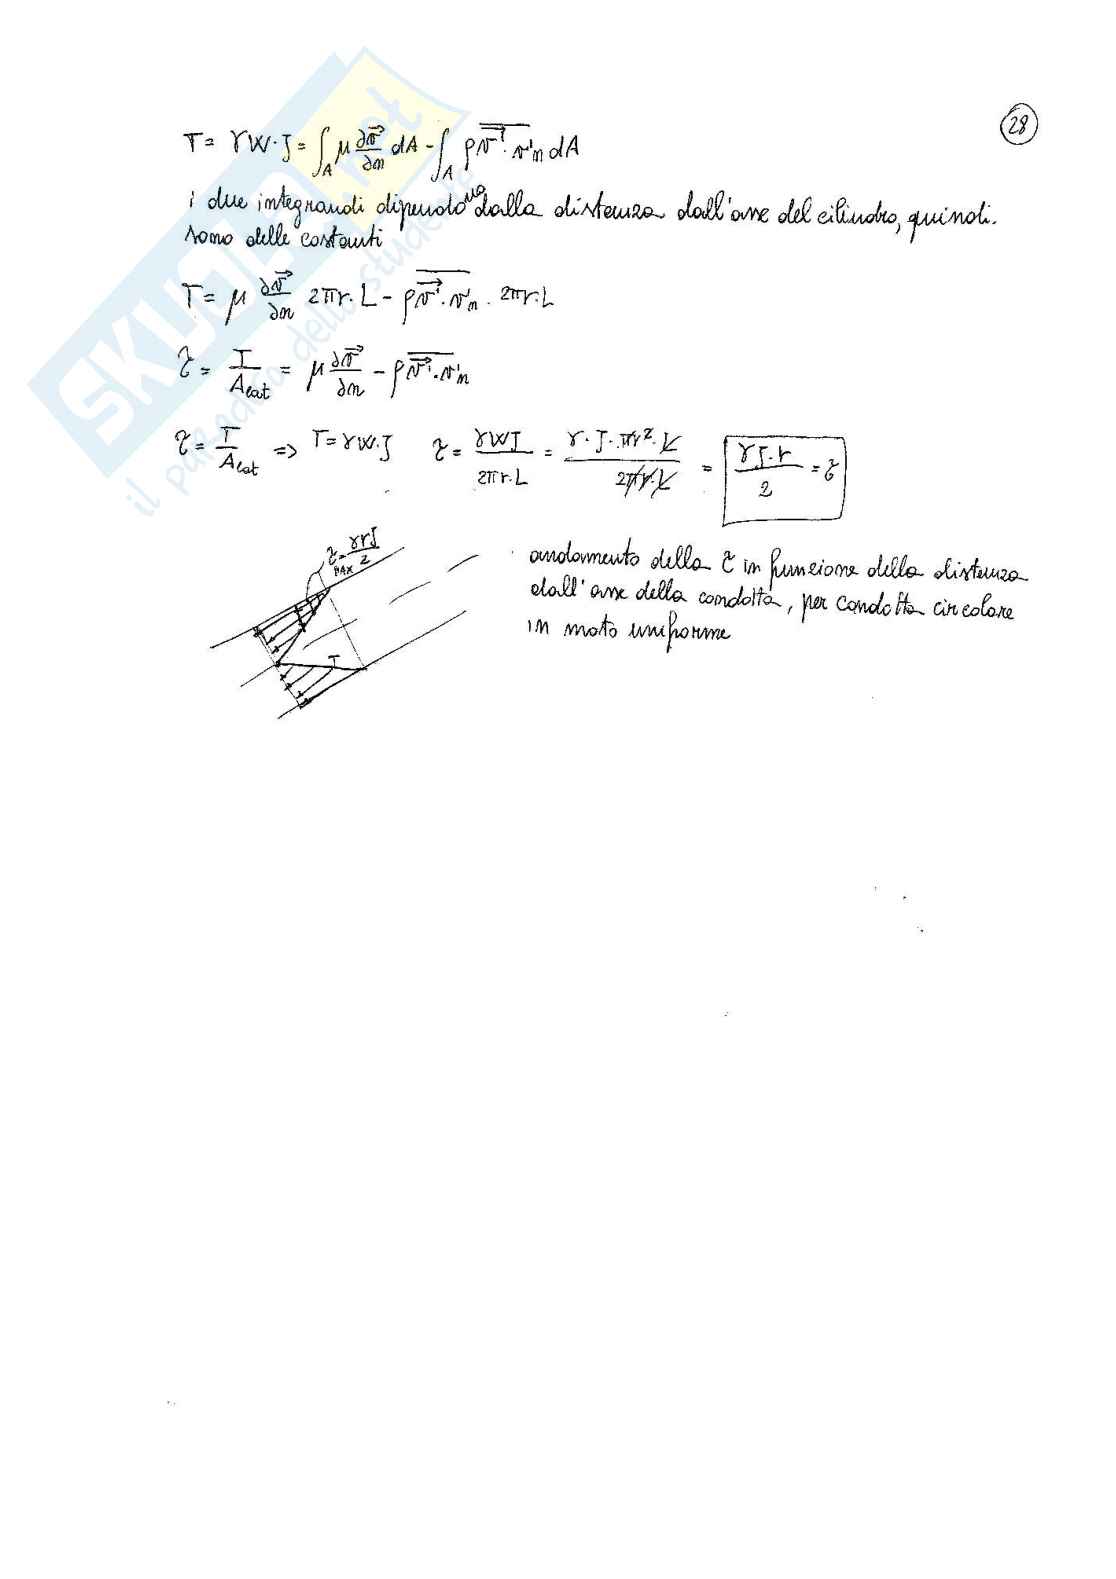 28
T = γW·J = ∫_A μ ∂v⃗/∂n dA - ∫_A ρ v⃗'·v'n dA
i due integrandi dipendono dalla distanza dall'asse del cilindro, quindi
sono delle costanti
T = μ ∂v⃗/∂n 2πr·L - ρ v⃗'·v'n · 2πr·L
τ = T/A_lat = μ ∂v⃗/∂n - ρ v⃗'·v'n
τ = T/A_lat => T = γW·J τ = γWJ/2πr·L = γ·J·πr²·L/2πr·L = γJ·r/2 = τ
τ MAX = γrJ/2
T
andamento della τ in funzione della distanza
dall'asse della condotta, per condotta circolare
in moto uniforme
SKUOLA.net
il paradiso dello studente